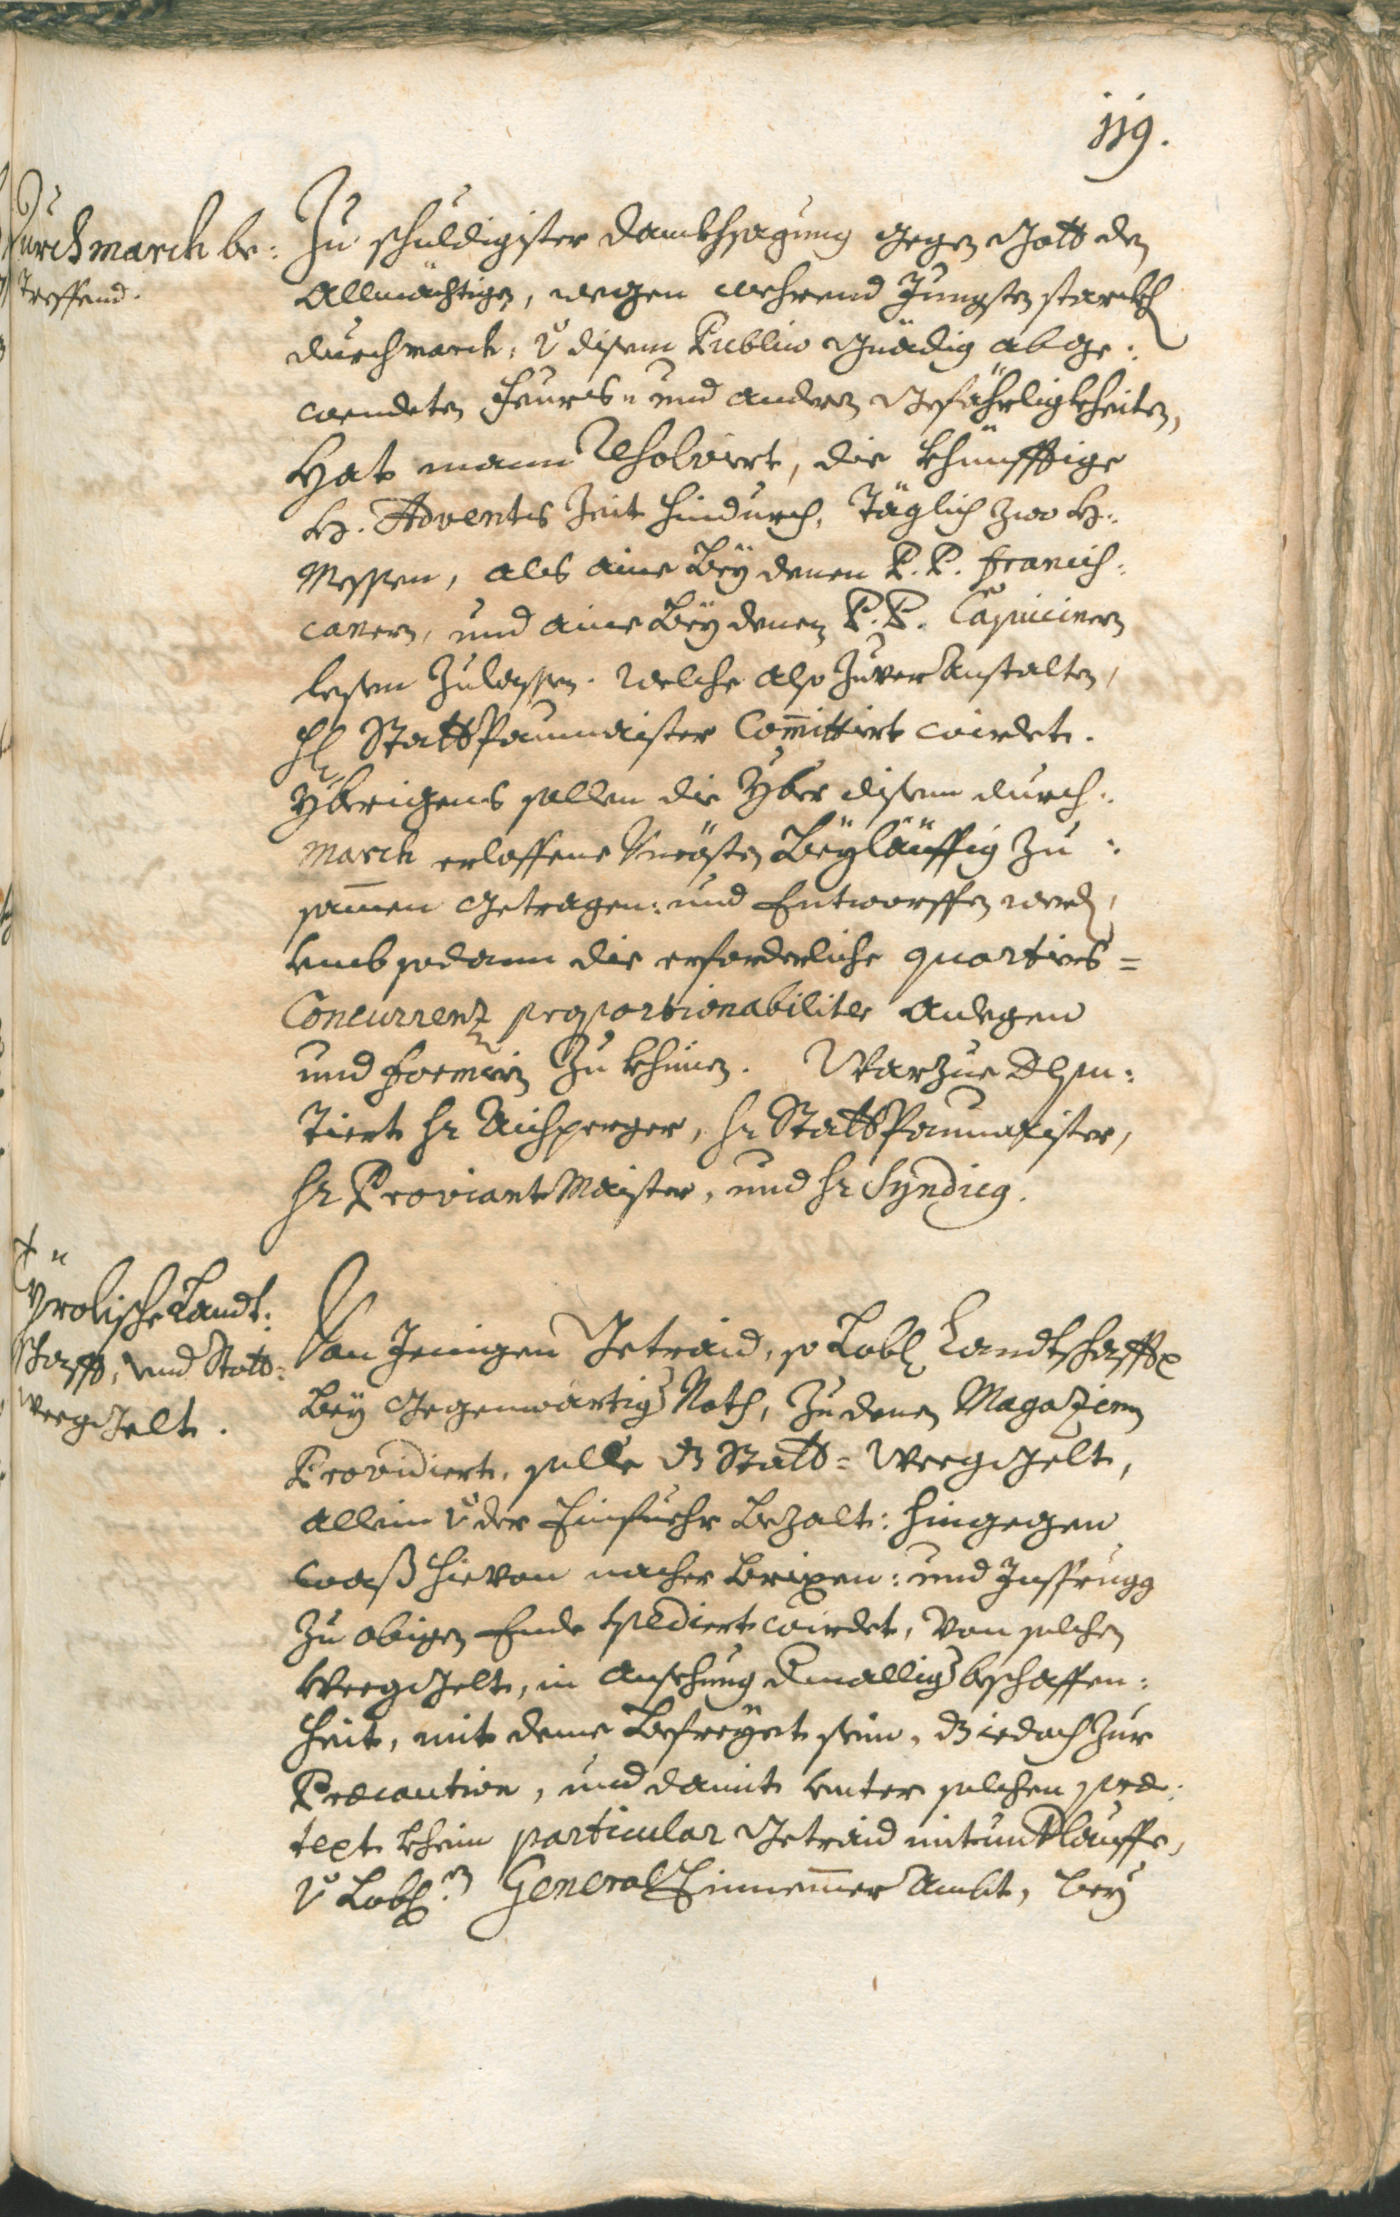 119.
Durchmarch be:
treffend.
Zu schuldigister Danckhsagung gegen Gott den
Allmächtigen, wegen wehrend Jungsten starckh
durchmarch, v disem Publico Gnädig abge:
wendeten Feurs- und anderen Gefährligkheiten,
Hat mann Resolviert, die khünfftige
H. Advents Zeit hindurch, Täglich zwo H:
Messen, als aine Bey denen P. P. Francis:
canern, und aine Bey denen P. P. Capucinern
lesen zulassen. Welche also zuver Anstalten,
H StattPaumaister Com̅ittirt wirdet.
Yberigens sollen die Yber disem durch:
march erloffene Uncösten Beyläuffig zu:
sam̅en getragen: und Entworffen werd,
umb sodann die erforderliche quartirs=
Concurrenz proportionabiliter anlegen
und formirn zu khünen. Warzue Depu:
tiert Hr Aichperger, Hr StattPaumaister,
Hr ProviantMaister, und Hr Syndicg.
Tyrolische Landt:
schafft, und Statt=
weeggelt.
Von Jenigen Getraid, so Lobl Landtschafft
Bey gegenwärtig Noth, zu denen Magazinen
Providiert, solle dz Statt= Weeggelt,
allein v der Einfuehr Bezalt: hingegen
waß hievon nacher Brixen: und Insprugg
zu obigen Ende spediert wirdet, Von solchen
Weeggelt, in Ansehung dmallig beschaffen:
heit, mit deme Befreyet sein, dz iedoch zur
Precaution, und damit unter solchen præ:
text khein particular Getraid mitundtlauffe,
v Lobl General Einnem̅er Ambt, bey